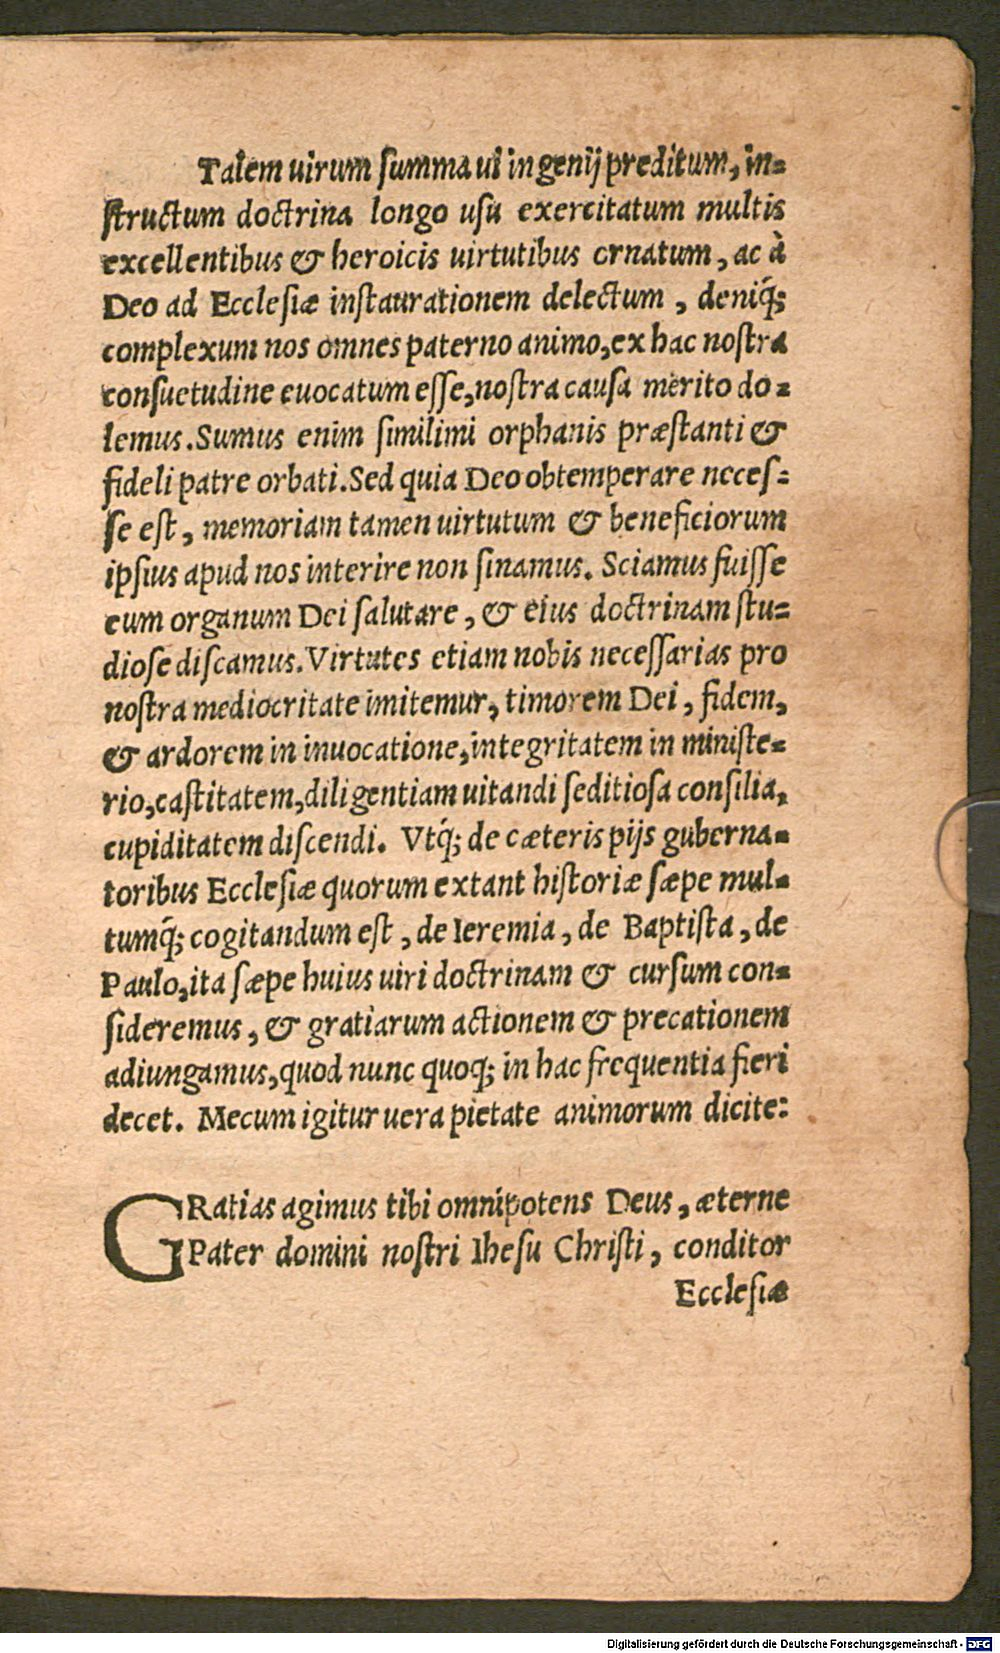 Talem uirum summa ui ingenij preditum, in-
ſtructum doctrina longo uſu exercitatum multis
excellentibus & heroicis uirtutibus ornatum, ac à
Deo ad Ecclesiæ inſtaurationem delectum, deniq́;
complexum nos omnes paterno animo, ex hac noſtra
conſuetudine euocatum eſſe, noſtra cauſa merito do-
lemus. Sumus enim ſimilimi orphanis præſtanti &
fideli patre orbati. Sed quia Deo obtemperare neceſ-
ſe eſt, memoriam tamen uirtutum & beneficiorum
ipſius apud nos interire non ſinamus. Sciamus fuiſſe
eum organum Dei ſalutare, & eius doctrinam ſtu-
dioſe diſcamus. Virtutes etiam nobis neceſſarias pro
noſtra mediocritate imitemur, timorem Dei, fidem,
& ardorem in inuocatione, integritatem in miniſte-
rio, caſtitatem, diligentiam uitandi ſeditioſa conſilia,
cupiditatem diſcendi. Vtq́; de cæteris pijs guberna-
toribus Eccleſiæ quorum extant hiſtoriæ ſæpe mul-
tumq́; cogitandum eſt, de Ieremia, de Baptiſta, de
Paulo, ita ſæpe huius uiri doctrinam & curſum con-
ſideremus, & gratiarum actionem & precationem
adiungamus, quod nunc quoq; in hac frequentia fieri
decet. Mecum igitur uera pietate animorum dicite:
GRatias agimus tibi omnipotens Deus, æterne
Pater domini noſtri Iheſu Chriſti, conditor
Eccleſiæ
Digitalisierung gefördert durch die Deutsche Forschungsgemeinschaft - DFG